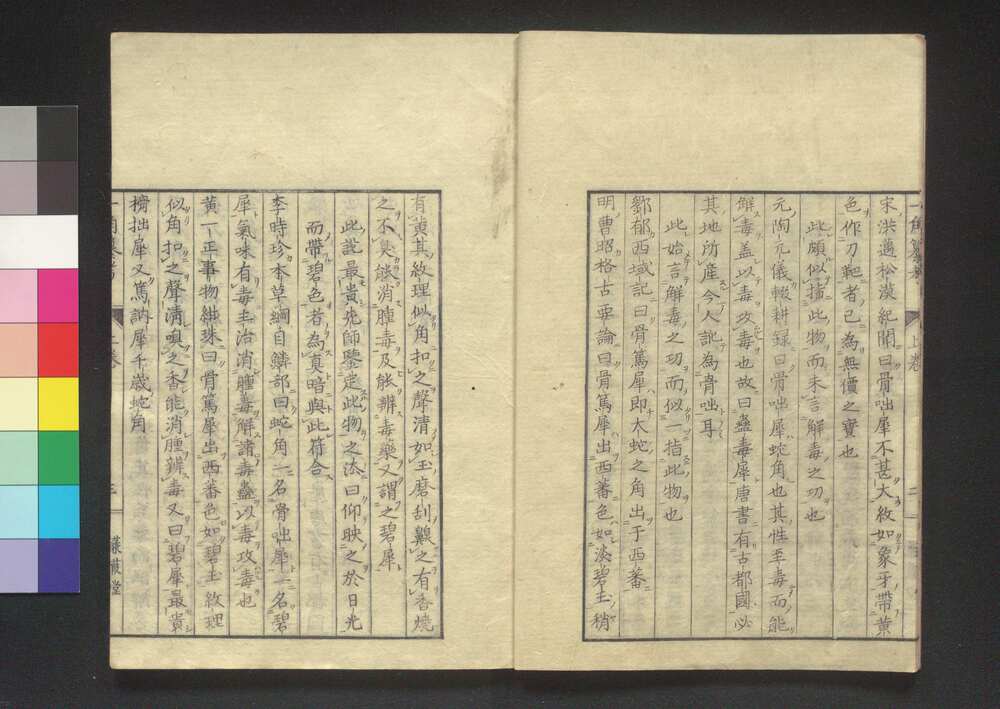 宋洪邁松漠紀聞曰骨咄犀不甚大紋如象牙帶黃
色作刀靶者已為無價之寶也
此頗似指此物而未言解毒之功也
元陶元儀輟耕録曰骨咄犀蛇角也其性至毒而能
解毒盖以毒攻毒也故曰蟲毒犀唐書有古都國必
其地所産今人訛為骨咄耳
此始言解毒之功而似一指此物也
鄒郁西域記曰骨篤犀即大蛇之角出于西蕃
明曹昭格古要論曰骨篤犀出西蕃色如淡碧玉稍
有黃其紋理似角扣之聲清如玉磨刮齅之有香燒
之不臭能消腫毒及能辨毒藥又謂之碧犀
此説最貴先師鑒定此物之法曰仰映之於日光
而帶碧色者為真暗與此符合
李時珍本草綱目鱗部曰蛇角一名骨咄犀一名碧
犀氣味有毒主治消腫毒解諸毒蠱以毒攻毒也
黃一正事物紺珠曰骨篤犀出西蕃色如碧玉紋理
似角扣之聲清嗅之香能消腫辨毒又曰碧犀最貴
榾拙犀又篤訥犀千歳蛇角
一角纂考
上卷
二
三
蒹葭堂